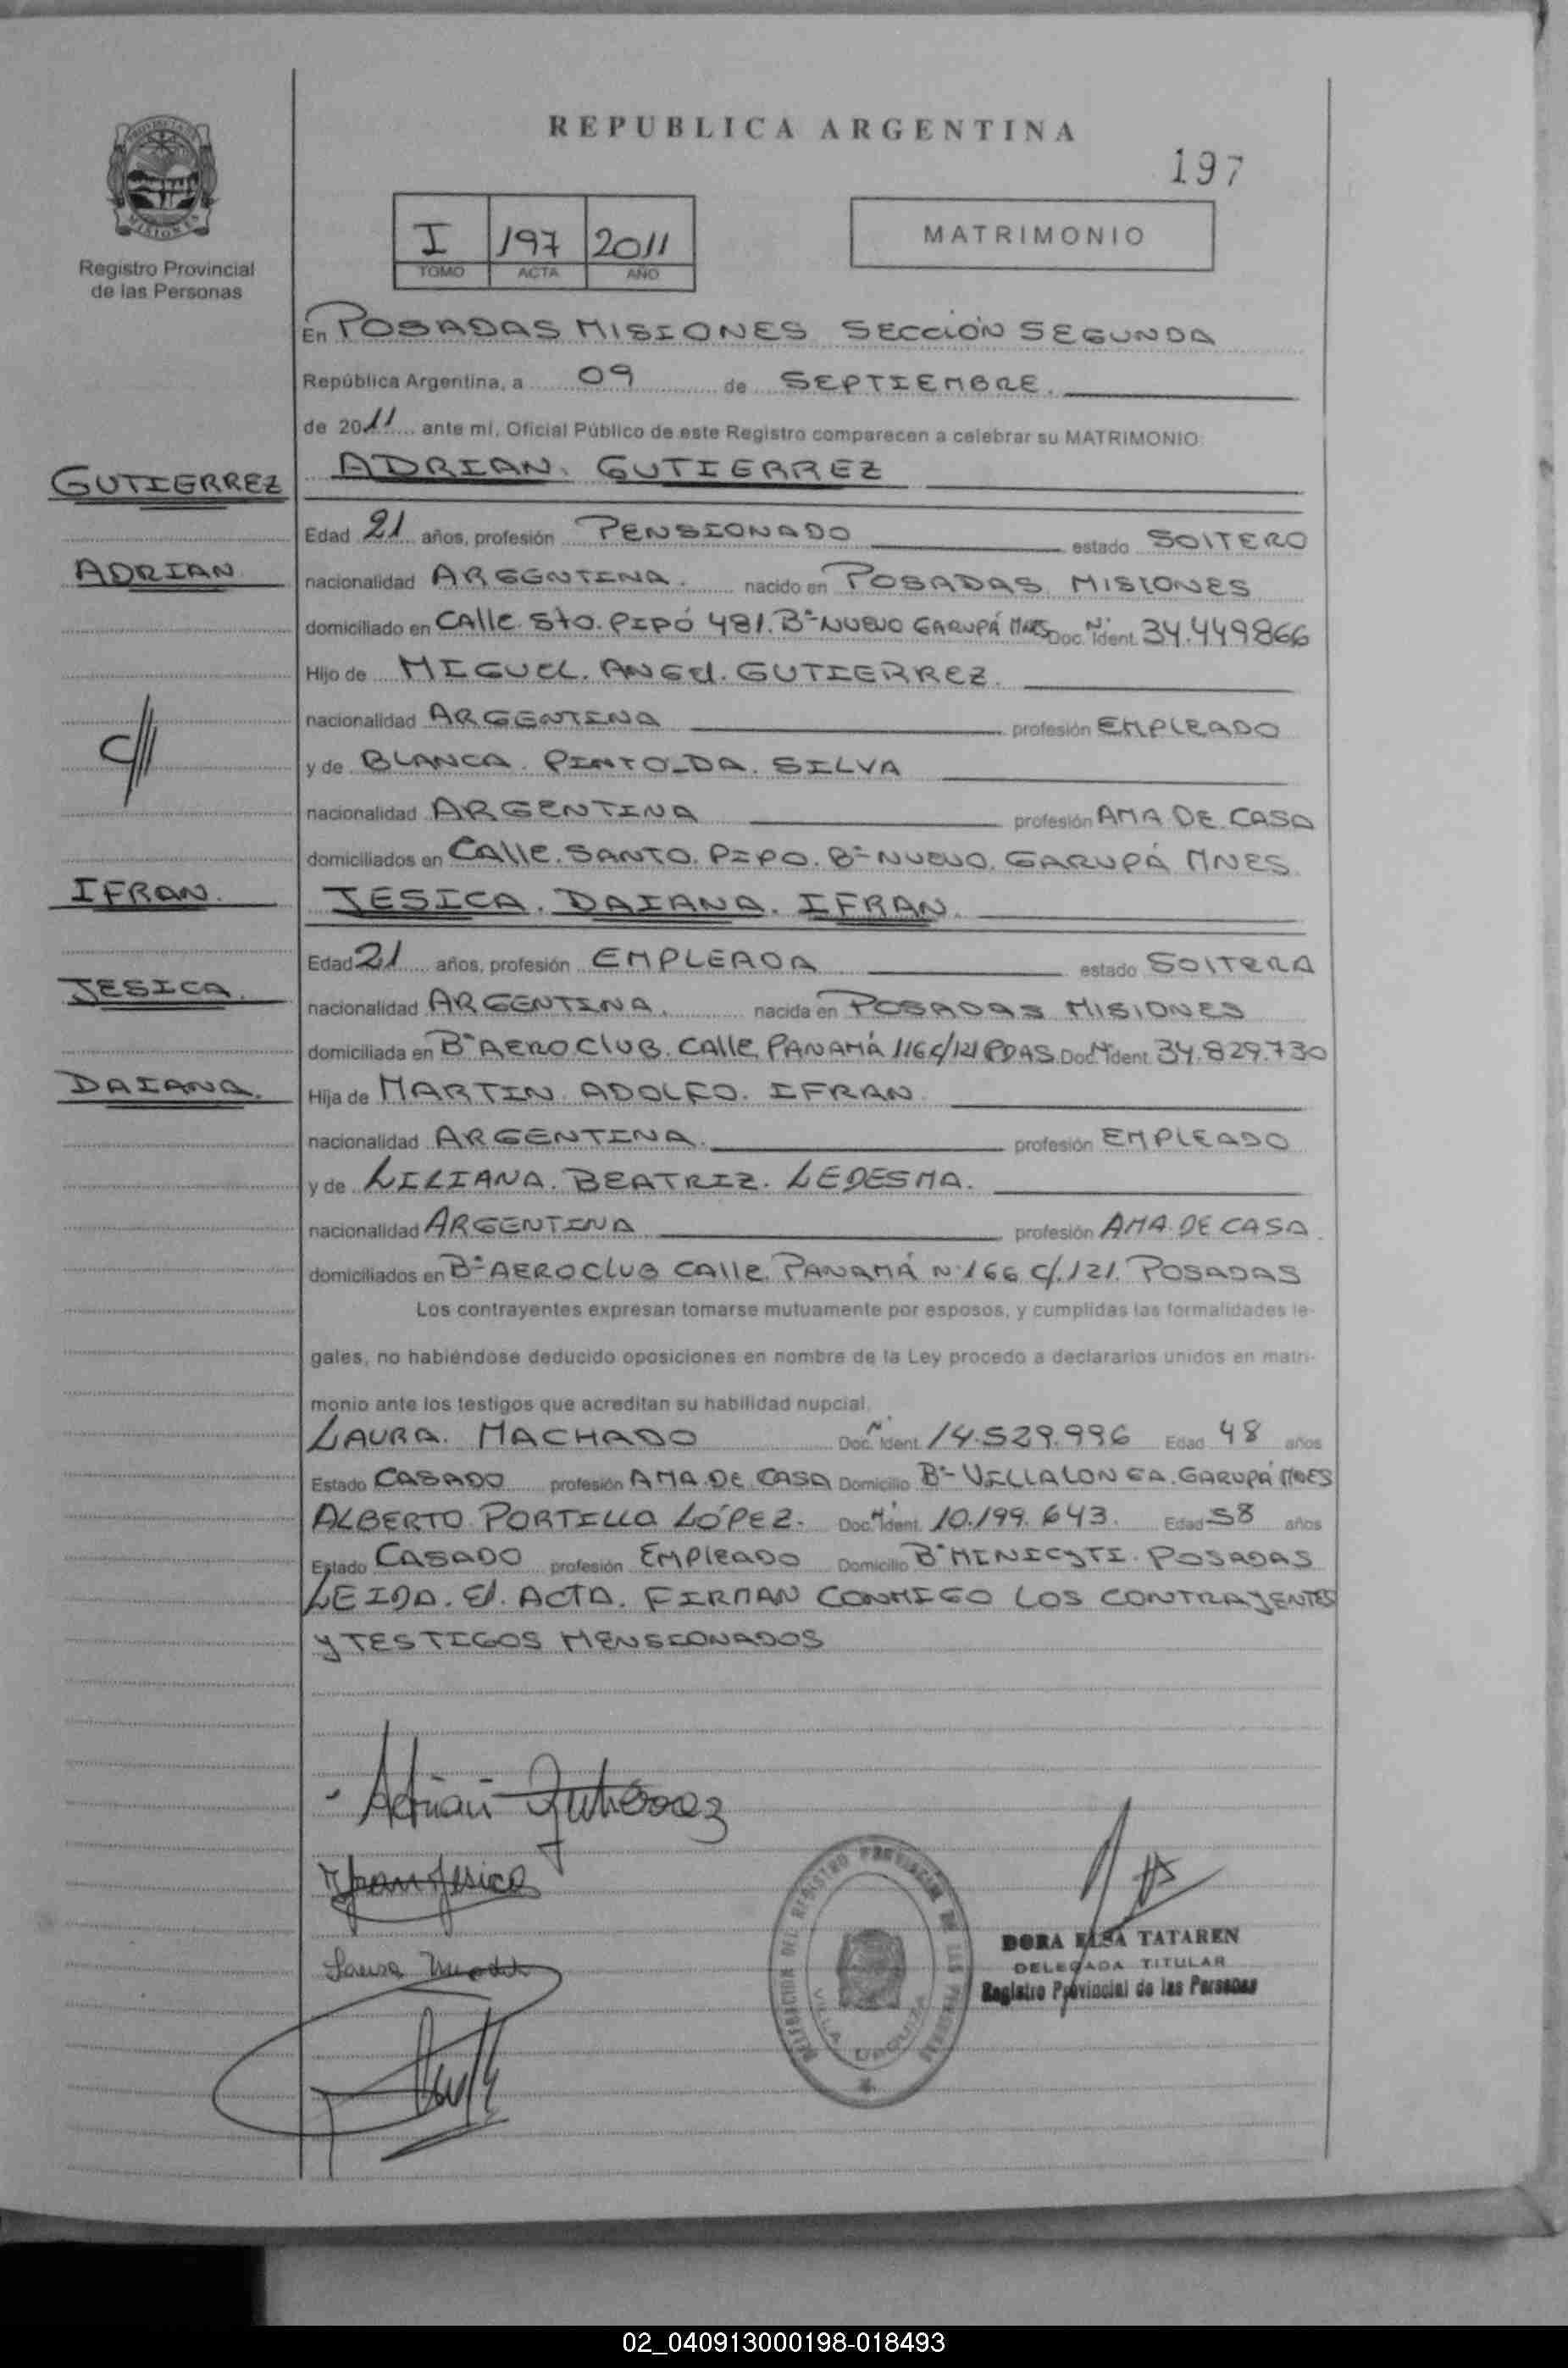 REPUBLICA ARGENTINA
197
PROVINCIA DE MISIONES
Registro Provincial
de las Personas
I 197 2011
TOMO ACTA AÑO
MATRIMONIO
En POSADAS MISIONES SECCIÓN SEGUNDA
República Argentina, a 09 de SEPTIEMBRE.
de 2011 ante mí, Oficial Público de este Registro comparecen a celebrar su MATRIMONIO
GUTIERREZ
ADRIAN
C///
IFRAN.
JESICA.
DAIANA.
ADRIAN. GUTIERREZ
Edad 21 años, profesión PENSIONADO estado SOLTERO
nacionalidad ARGENTINA. nacido en POSADAS MISIONES
domiciliado en CAlle. Sto. PIPÓ 481. Bº NUEVO GARUPÁ MNES Doc. Nº Ident. 34.449866
Hijo de MIGUEL. ANGEl. GUTIERREZ.
nacionalidad ARGENTINA profesión EMPLEADO
y de BLANCA. PINTO_DA. SILVA
nacionalidad ARGENTINA profesión AMA DE CASA
domiciliados en CAlle. SANTO. PIPO. Bº NUEVO. GARUPÁ MNES.
JESICA. DAIANA. IFRAN.
Edad 21 años, profesión EMPLEADA estado SOLTERA
nacionalidad ARGENTINA. nacida en POSADAS MISIONES
domiciliada en Bº AEROCLUB. CAlle. PANAMÁ 1166/121 PDAS. Doc. Nº Ident. 34.829.730
Hija de MARTIN. ADOLFO. IFRAN.
nacionalidad ARGENTINA. profesión EMPLEADO
y de LILIANA. BEATRIZ. LEDESMA.
nacionalidad ARGENTINA profesión AMA DE CASA.
domiciliados en Bº AEROCLUB CAlle. PANAMÁ Nº 166 C/.121. POSADAS
Los contrayentes expresan tomarse mutuamente por esposos, y cumplidas las formalidades le-
gales, no habiéndose deducido oposiciones en nombre de la Ley procedo a declararlos unidos en matri-
monio ante los testigos que acreditan su habilidad nupcial.
LAURA. MACHADO Doc. Nº Ident. 14.529.996 Edad 48 años
Estado CASADO profesión AMA DE CASA Domicilio Bº VILLALONGA. GARUPÁ MNES
ALBERTO PORTILLO LÓPEZ. Doc. Nº Ident. 10.199.643. Edad 58 años
Estado CASADO profesión EMPLEADO Domicilio Bº MINICYTI. POSADAS
LEIDA. El. ACTA. FIRMAN CONMIGO LOS CONTRAYENTES
y TESTIGOS MENSIONADOS
Adrian Gutierrez
Ifran Jesica
Laura
DELEGACION DEL REGISTRO PROVINCIAL DE LAS PERSONAS
VILLA URQUIZA
DORA ELSA TATAREN
DELEGADA TITULAR
Registro Provincial de las Personas
02_040913000198-018493